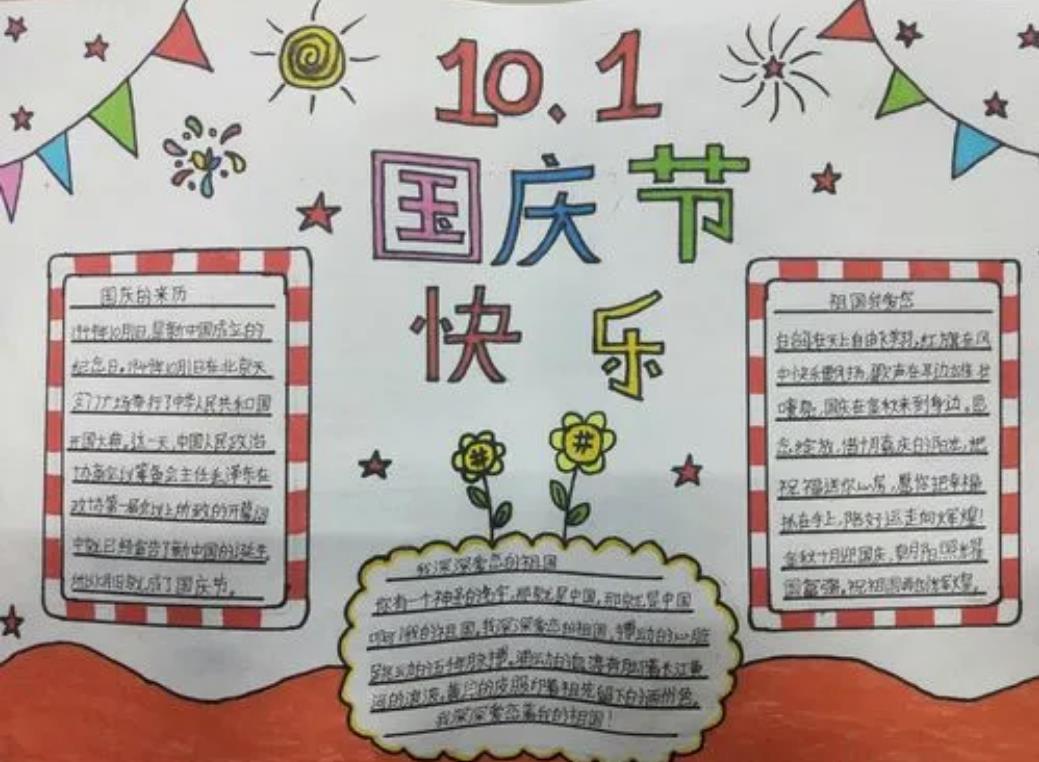 10.1
国庆节
快乐
国庆的来历
1949年10月1日,是新中国成立的
纪念日。1949年10月1日在北京天
安门广场举行了中华人民共和国
开国大典。这一天,中国人民政治
协商会议筹备会主任毛泽东在
政协第一届会议上所致的开幕词
中就已经宣告了新中国的诞生。
10月1日就成了国庆节。
我深深爱恋的祖国
你有一个神圣的名字,那就是中国,那就是中国
啊!我的祖国。我深深爱恋的祖国,搏动的心脏
是跳动的五千年脉搏。涌动的血液有长江黄
河的浪波,黄色的皮肤印着祖先留下的颜色。
我深深爱恋着我的祖国!
祖国我爱您
白鸽在天上自由飞翔,红旗在风
中快乐飘扬,歌声在耳边雄壮
嘹亮,国庆在金秋来到身边。思
念绽放,借十月喜庆的阳光,把
祝福送你心房,愿你把幸福
抓在手上,陪好运走向辉煌!
金秋十月迎国庆,
国富强。祝祖国再创辉煌。